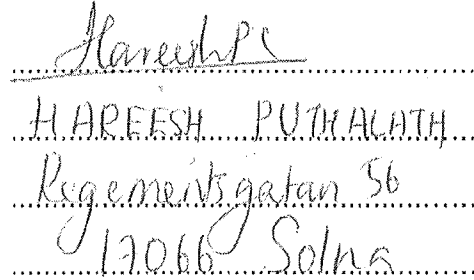 Hareesh PC
HAREESH PUTHALATH
Regementsgatan 56
17066 Solna